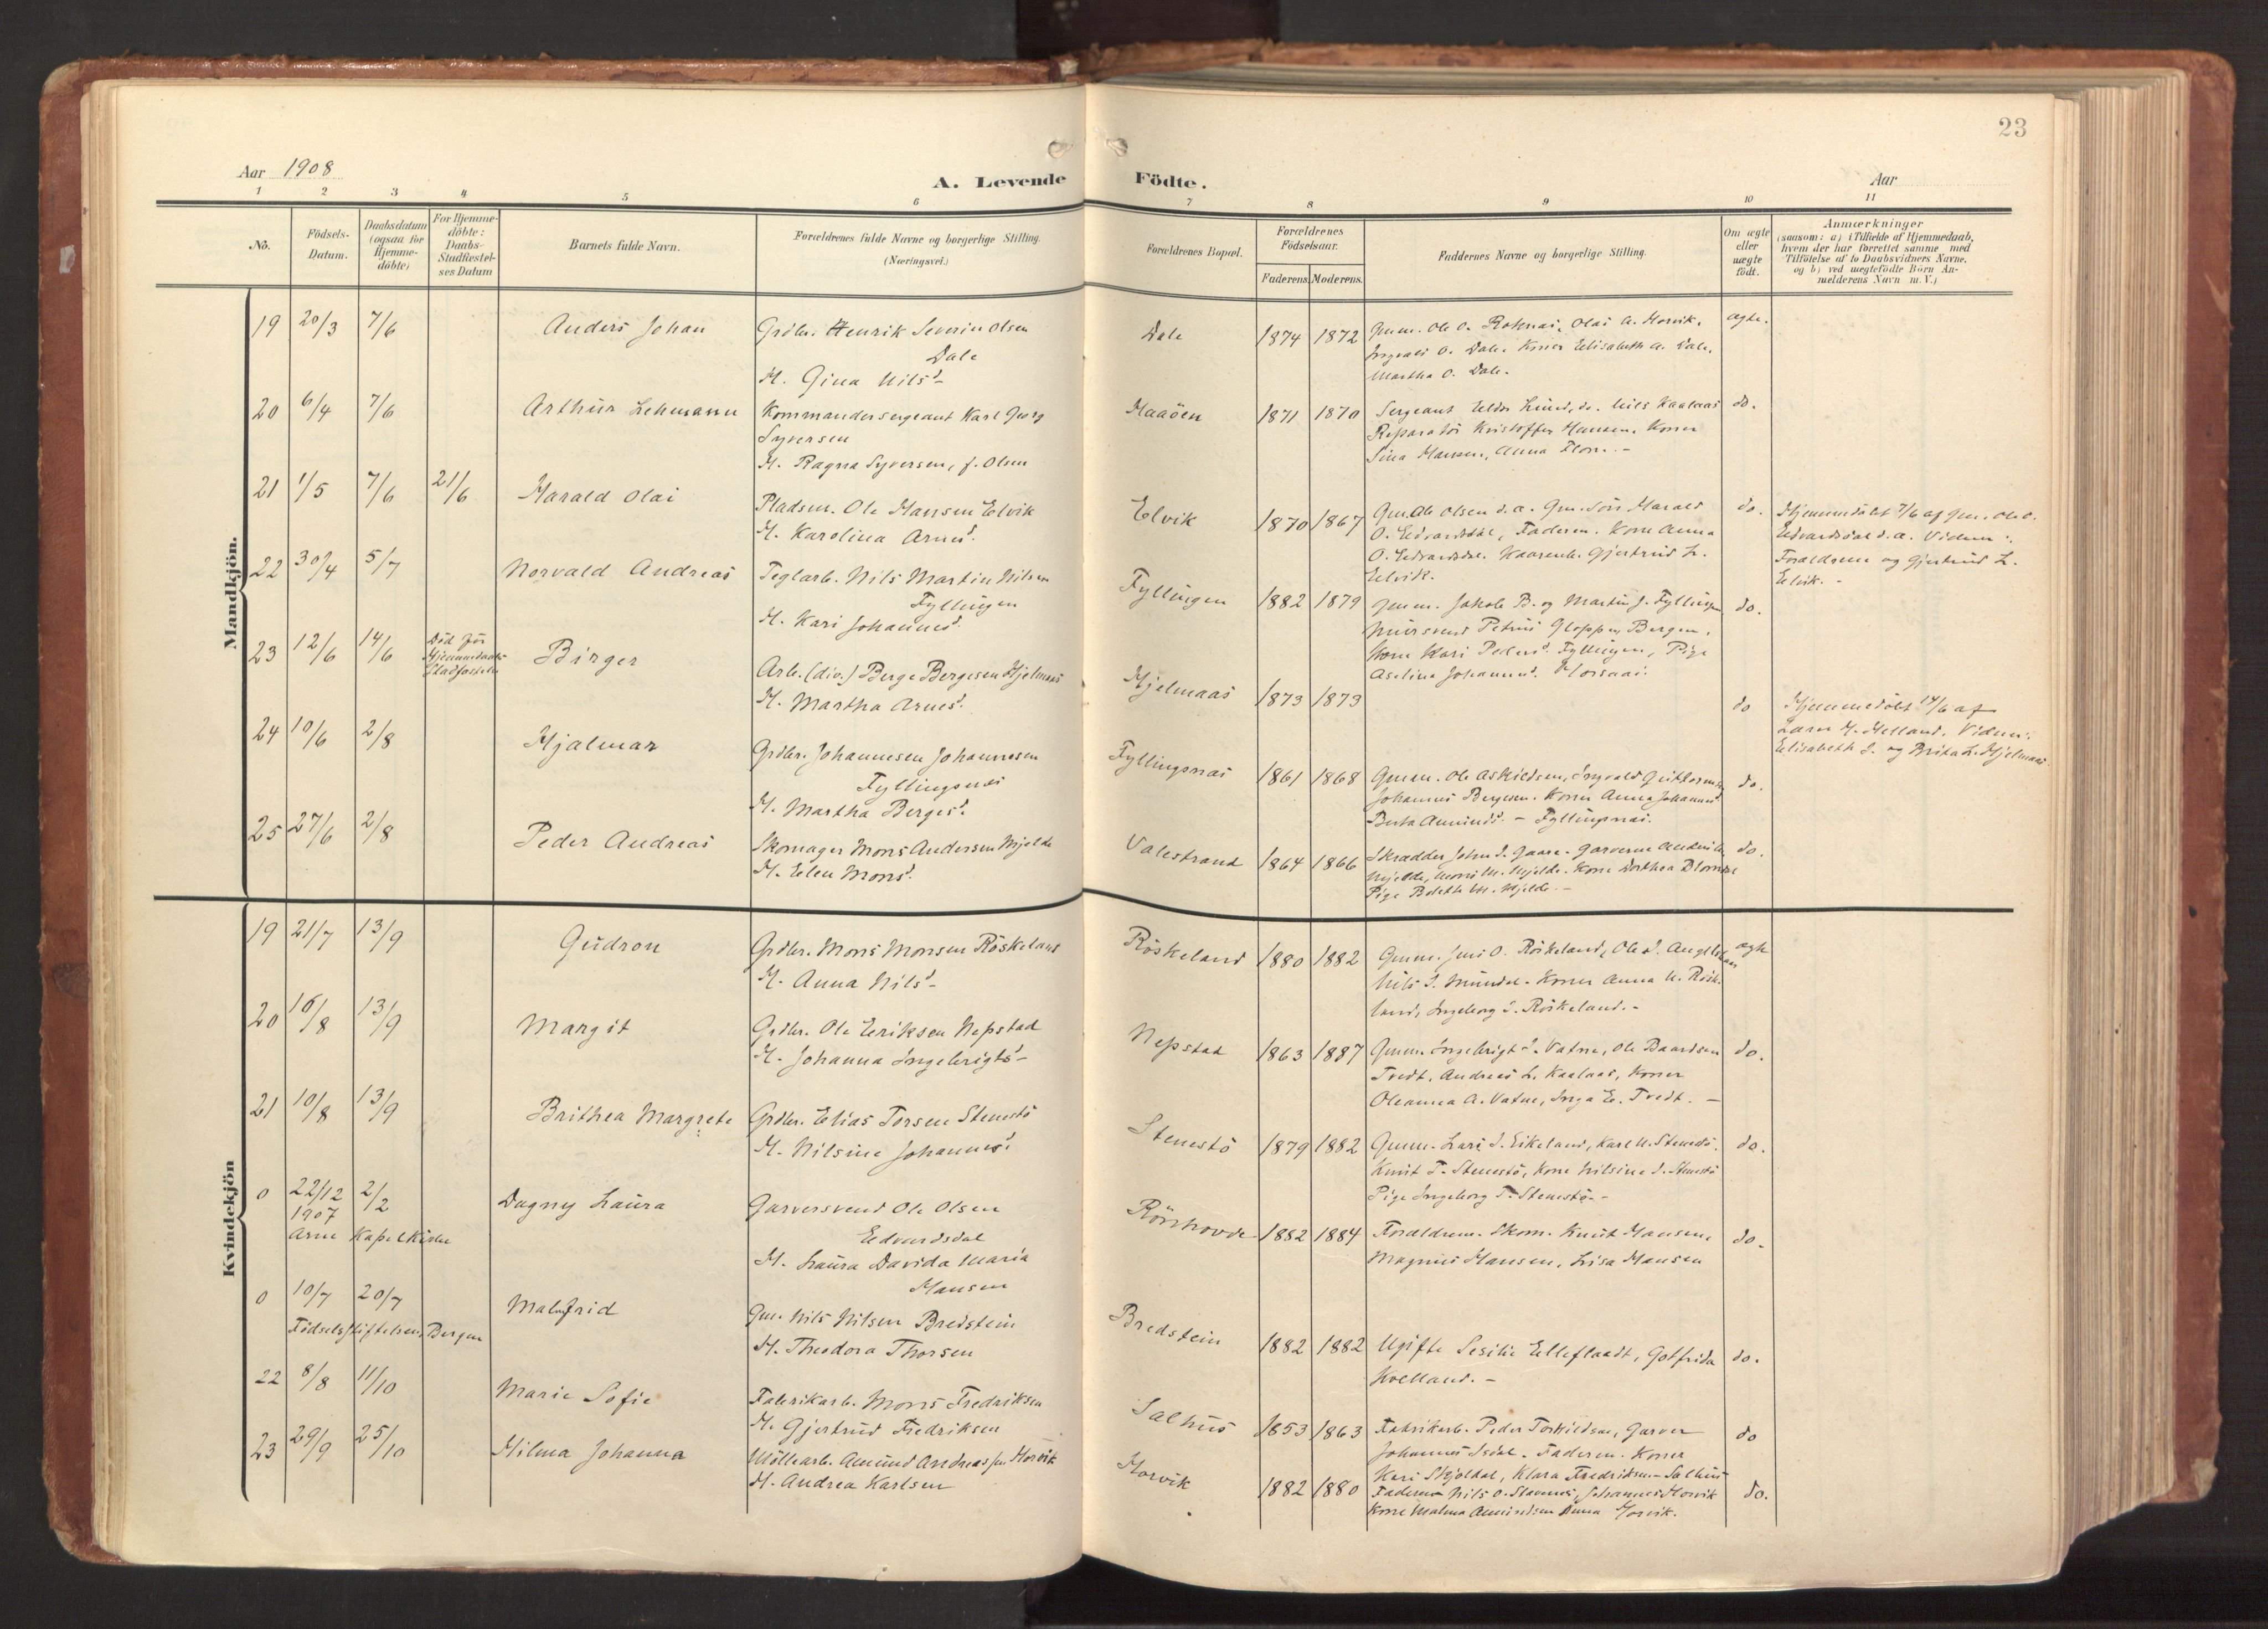 23
Aar 1908
A. Levende Födte.
Aar
1 2 3 4 5 6 7 8 9 10 11
No.
Födsels-
Datum.
Daabsdatum
(ogsaa for
Hjemme-
döbte)
For Hjemme-
döbte:
Daabs-
Stadfæstel-
ses Datum
Barnets fulde Navn.
Forældrenes fulde Navne og borgerlige Stilling.
(Næringsvei.)
Forældrenes Bopæl.
Forældrenes
Födselsaar.
Faderens. Moderens.
Faddernes Navne og borgerlige Stilling.
Om ægte
eller
uægte
födt.
Anmærkninger
(saasom: a) i Tilfælde af Hjemmedaab,
hvem der har forrettet samme med
Tilföielse af to Daabsvidners Navne,
og b) ved uægtefödte Börn An-
melderens Navn m.V.)
Mandkjön.
19 20/3 7/6 Anders Johan
Grdbr. Henrik Severin Olsen
Dale
H. Gina Nilsd.
Dale 1874 1872
Gmm. Ole O. Roknæs, Olai A. Horvik,
Ingvald O. Dale. Koner Elisabeth A. Dale,
Martha O. Dale.
ægte.
20 6/4 7/6 Arthur Lehmann
Kommandersergeant Karl Georg
Syversen
H. Ragna Syversen, f. Olsen
Haaöen 1871 1870
Sergeant Lund, do. Nils Kaalaas
Reparatör Kristoffer Hansen, Koner
Sina Hansen, Anna
do.
21 1/5 7/6 21/6 Harald Olai
Pladsm. Ole Hansen Elvik
H. Karolina Arnesd.
Elvik 1870 1867
Gm. Ole Olsen s.a. Gm. Sön Harald
O. Edvardsdal, Faderen. Kone Anna
O. Edvardsdal. Gjertrud L.
Elvik.
do.
Hjemmedöbt 7/6 af Gm. Ole O.
Edvardsdal s.a. Vidner:
Forældrene og Gjertrud L.
Elvik. -
22 30/4 5/7 Norvald Andreas
Teglarb. Nils Martin Nilsen
Fyllingen
H. Kari Johannesd.
Fyllingen 1882 1879
Gmm. Jakob B. og Martin J. Fyllingen
Mursvend Petrus Gloppen, Bergen,
Kone Kari Pedersd. Fyllingen, Pige
Aselina Johannesd.
do.
23 12/6 14/6 Död för
Hjemmedaabs
Stadfæstelse
Birger
Arb. (div.) Berge Bergesen Hjelmaas
H. Martha Arnesd.
Hjelmaas 1873 1873
do
Hjemmedöbt 14/6 af
Lars H. Helland. Vidner:
Elisabeth J. og Brita L. Hjelmaas.
24 10/6 2/8 Hjalmar
Grdbr. Johannesen Johannesen
Fyllingsnæs
H. Martha Bergesd.
Fyllingsnæs 1861 1868
Gmm. Ole Askildsen, Ingvald Guttormsen
Johannes Bergesen. Koner Anna Johannesd.
Berta Amundsd. - Fyllingsnæs.
do.
25 27/6 2/8 Peder Andreas
Skomager Mons Andersen Mjelde
H. Elen Monsd.
Valestrand 1864 1866
Skrædder John J. Gaare. Garverne Anders M.
Mjelde, Mons M. Mjelde. Kone Dorthea
Pige Bolette M. Mjelde. -
do.
Kvindekjön
19 21/7 13/9 Gudron
Grdbr. Mons Monsen Röskeland
H. Anna Nilsd.
Röskeland 1880 1882
Gmm. Jens O. Röskeland, Ole J.
Nils J. Mundal. Koner Anna N. Röske-
land, Ingeborg J. Röskeland. -
ægte
20 16/8 13/9 Margit
Grdbr. Ole Eriksen Nepstad
H. Johanna Ingebrigtsd.
Nepstad 1863 1887
Gmm. Ingebrigt J. Vatne, Ole Baardsen
Tvedt, Andreas L. Kaalaas, Koner
Oleanna A. Vatne, Inga E. Tvedt. -
do.
21 10/8 13/9 Brithea Margrete
Grdbr. Elias Torsen Stenestö
H. Nilsine Johannesd.
Stenestö 1879 1882
Gmm. Lars J. Eikeland, Karl N. Stenestö
Knut T. Stenestö, Kone Nilsine J. Stenestö
Pige Ingeborg T. Stenestö. -
do.
0 22/12 1907 2/2 Dagny Laura
Arne Kapelkirke
Garversvend Ole Olsen
Edvardsdal
H. Laura Davida Maria
Hansen
1882 1884
Forældrene. Skom. Knut Hansen,
Magnus Hansen, Lisa Hansen
do.
0 10/7 20/7 Malmfrid
Födselsstiftelsen, Bergen
Gm. Nils Nilsen Bredstein
H. Theodora Thorsen
Bredstein 1882 1882
Ugifte Sesilie Elleflaadt, Gotfrida
Kvelland. -
do.
22 8/8 11/10 Marie Sofie
Fabrikarb. Mons Fredriksen
H. Gjertrud Fredriksen
Salhus 1853 1863
Fabrikarb. Peder Torkildsen, Garver
Johannes Isdal. Faderen. Koner
Kari Skjoldal, Klara Fredriksen - Salhus
do
23 29/9 25/10 Hilma Johanna
Möllearb. Amund Andreassen Horvik
H. Andrea Karlsen
Horvik 1882 1880
Faderen Nils O. Johannes Horvik
Kone Malma Amundsen Anna Horvik.
do.